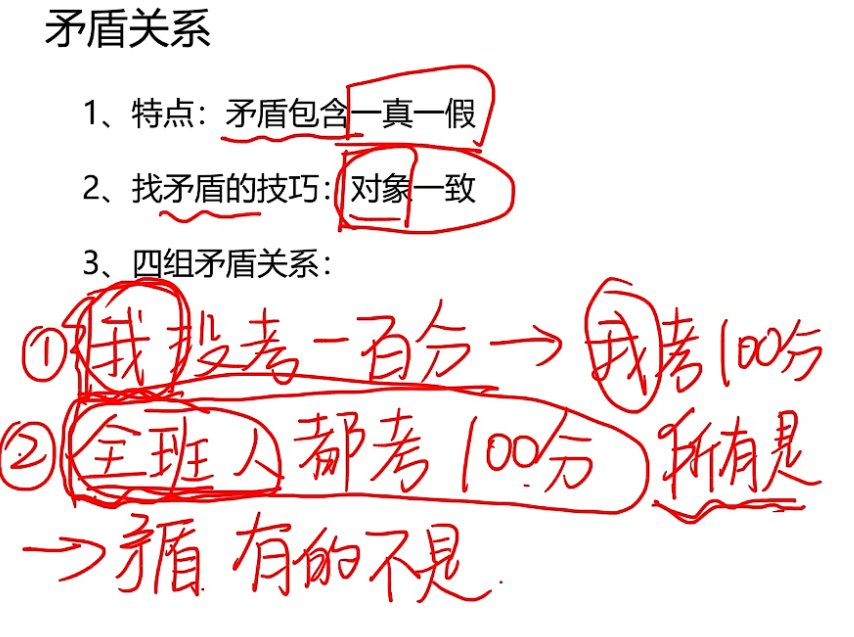 矛盾关系
1、特点：矛盾包含一真一假
2、找矛盾的技巧：对象一致
3、四组矛盾关系：
①我没考一百分→我考100分
②全班人都考100分 所有是
→矛盾 有的不是.